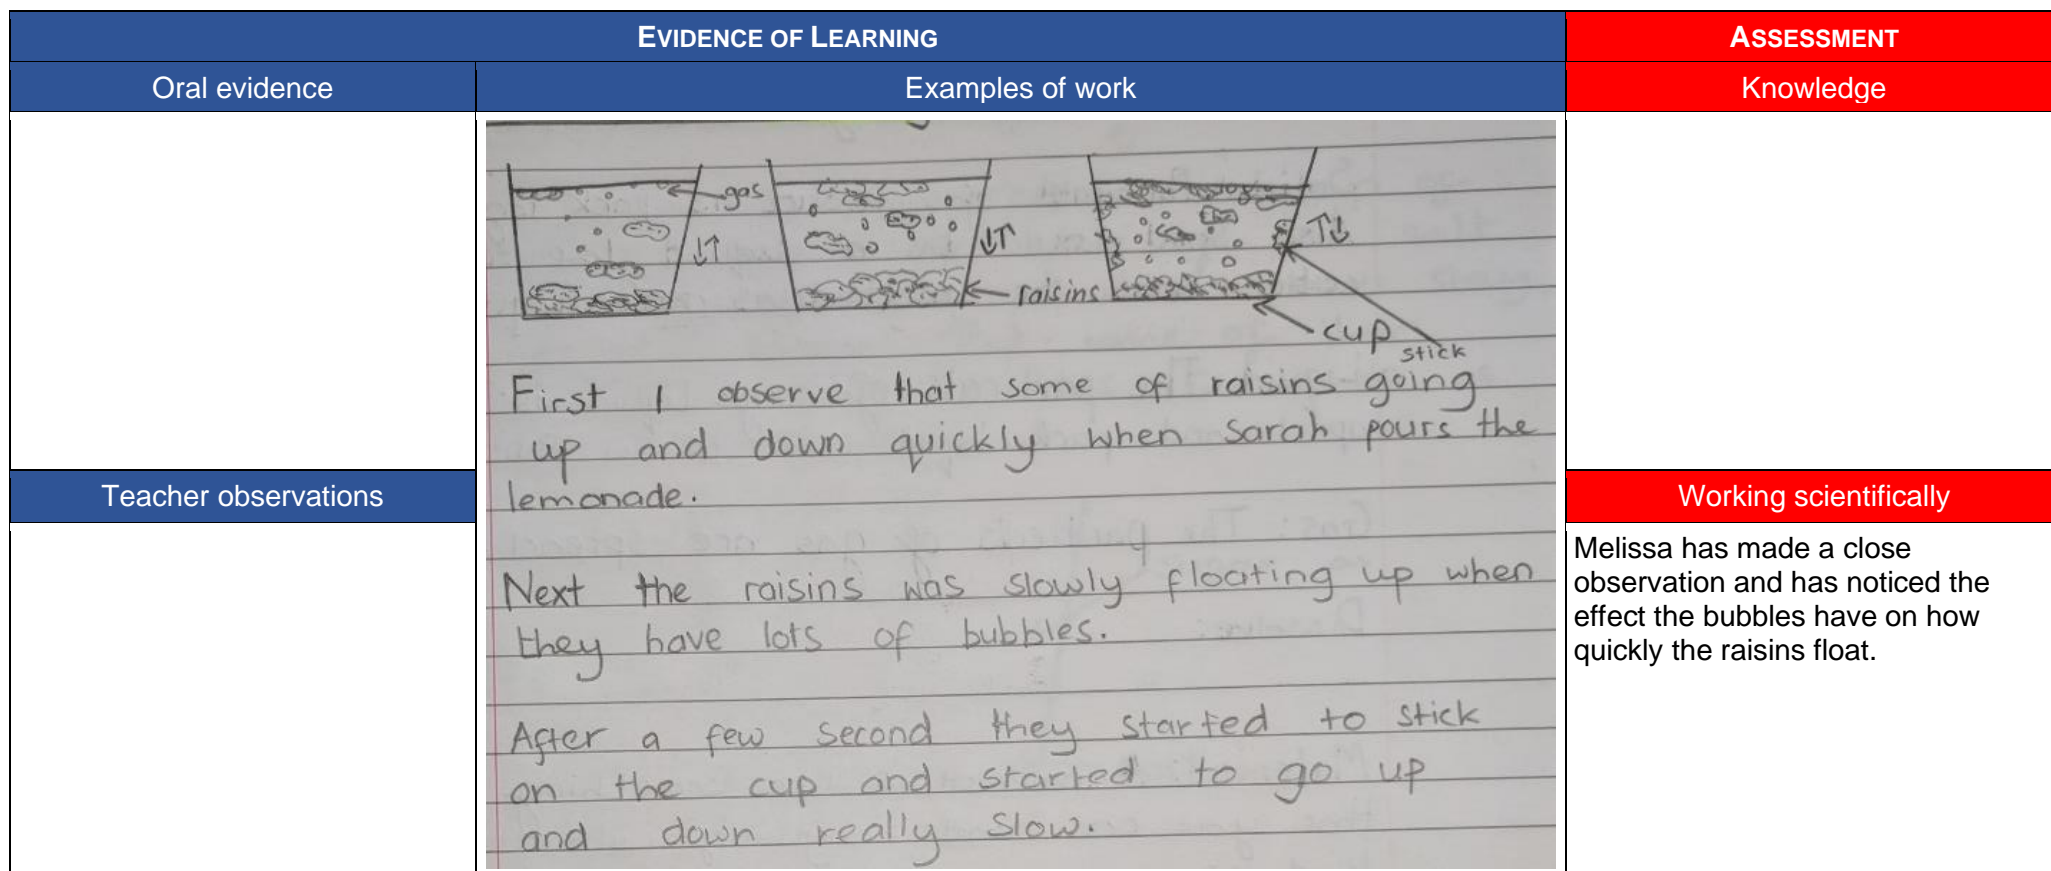 EVIDENCE OF LEARNING
ASSESSMENT
Oral evidence
Examples of work
Knowledge
gas
raisins
cup
stick
First I observe that some of raisins going
up and down quickly when Sarah pours the
lemonade.
Next the raisins was slowly floating up when
they have lots of bubbles.
After a few second they started to stick
on the cup and started to go up
and down really slow.
Teacher observations
Working scientifically
Melissa has made a close
observation and has noticed the
effect the bubbles have on how
quickly the raisins float.